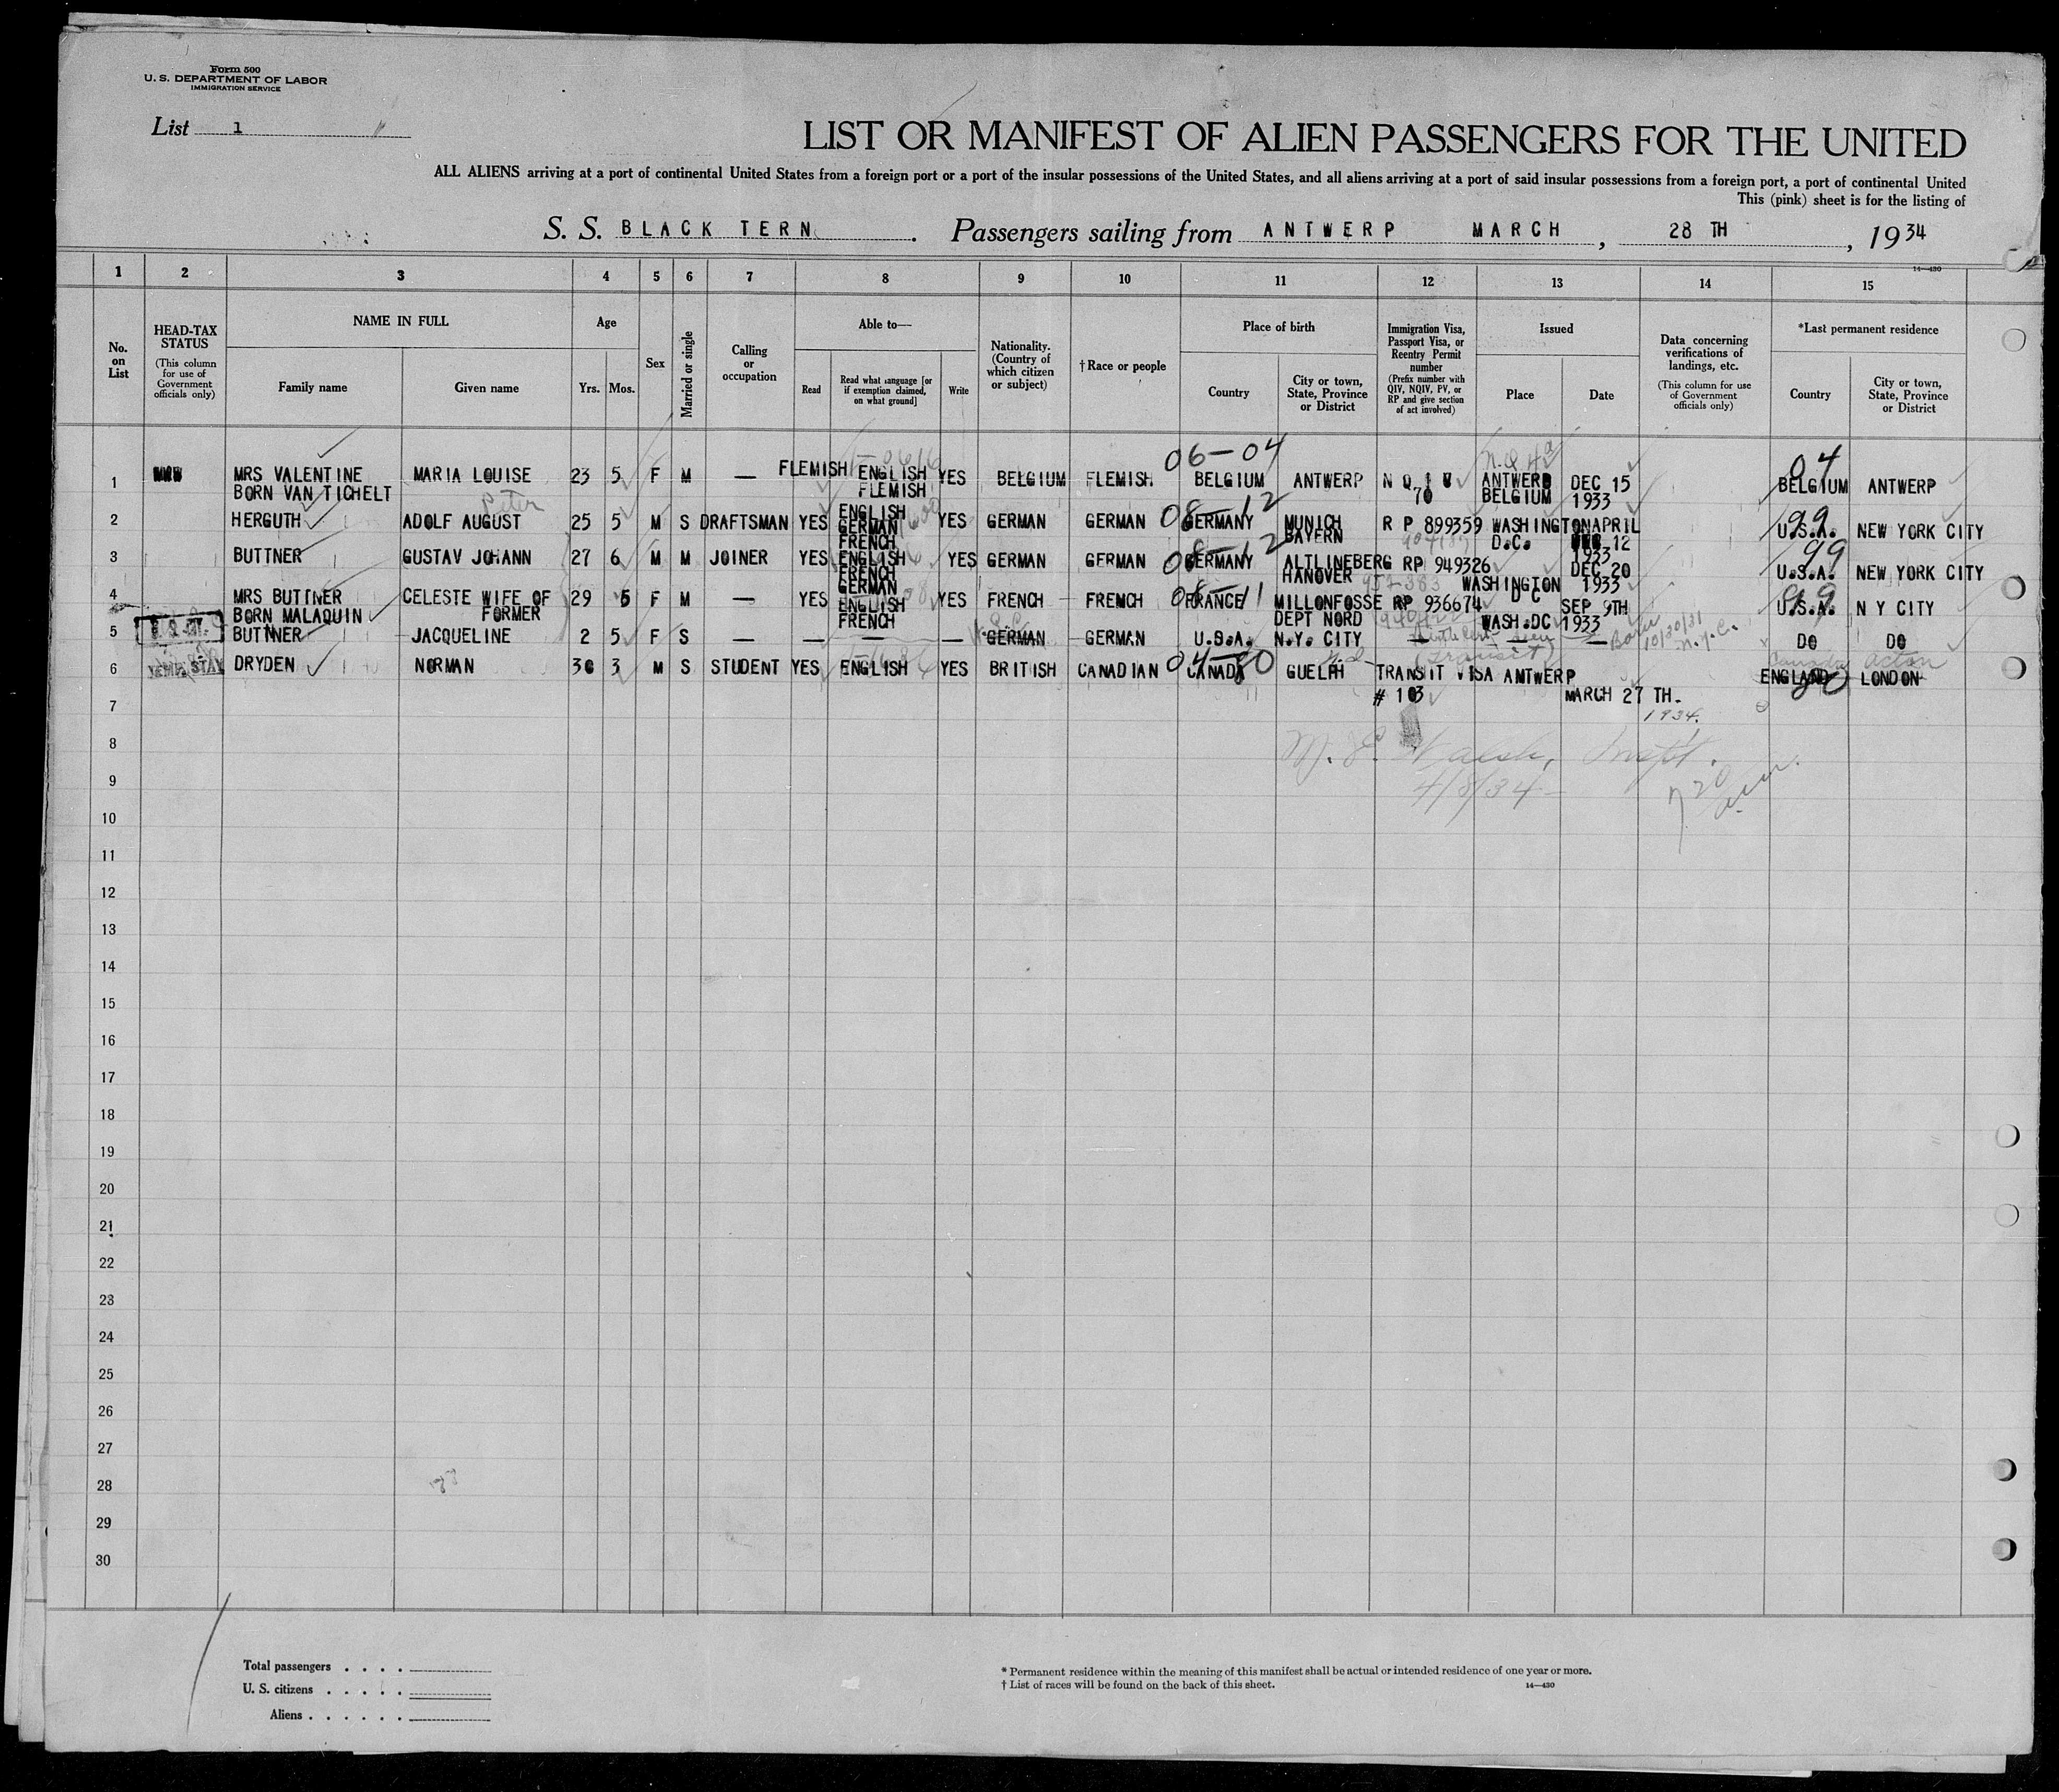 Form 500
U. S. DEPARTMENT OF LABOR
IMMIGRATION SERVICE
List 1
LIST OR MANIFEST OF ALIEN PASSENGERS FOR THE UNITED
ALL ALIENS arriving at a port of continental United States from a foreign port or a port of the insular possessions of the United States, and all aliens arriving at a port of said insular possessions from a foreign port, a port of continental United
This (pink) sheet is for the listing of
S. S. BLACK TERN. Passengers sailing from ANTWERP MARCH, 28 TH, 1934
14—430
1 2 3 4 5 6 7 8 9 10 11 12 13 14 15
No. on List
HEAD-TAX STATUS (This column for use of Government officials only)
NAME IN FULL Family name Given name
Age Yrs. Mos.
Sex
Married or single
Calling or occupation
Able to— Read Read what language [or if exemption claimed, on what ground] Write
Nationality. (Country of which citizen or subject)
†Race or people
Place of birth Country City or town, State, Province or District
Immigration Visa, Passport Visa, or Reentry Permit number (Prefix number with QIV, NQIV, PV, or RP and give section of act involved)
Issued Place Date
Data concerning verifications of landings, etc. (This column for use of Government officials only)
*Last permanent residence Country City or town, State, Province or District
06-04 04
1 MRS VALENTINE MARIA LOUISE 23 5 F M — FLEMISH ENGLISH YES BELGIUM FLEMISH BELGIUM ANTWERP N Q I V ANTWERP DEC 15 BELGIUM ANTWERP
BORN VAN TICHELT FLEMISH 70 BELGIUM 1933
Peter
08-12 99
2 HERGUTH ADOLF AUGUST 25 5 M S DRAFTSMAN YES ENGLISH GERMAN YES GERMAN GERMAN GERMANY MUNICH BAYERN R P 899359 WASHINGTON D.C. APRIL 12 1933 U.S.A. NEW YORK CITY
08-12 99
3 BUTTNER GUSTAV JOHANN 27 6 M M JOINER YES FRENCH ENGLISH YES GERMAN GERMAN GERMANY ALTLINEBERG HANOVER RP 949326 WASHINGTON D C DEC 20 1933 U.S.A. NEW YORK CITY
FRENCH GERMAN
08-11 99
4 MRS BUTTNER CELESTE WIFE OF 29 5 F M — YES ENGLISH YES FRENCH FRENCH FRANCE MILLONFOSSE RP 936674 WASH.DC SEP 9TH 1933 U.S.A. N Y CITY
BORN MALAQUIN FORMER FRENCH DEPT NORD
5 BUTTNER JACQUELINE 2 5 F S — — — — GERMAN GERMAN U.S.A. N.Y. CITY — — — DO DO
Born 10/30/31 N.Y.C.
(Transit) Canada Acton
04-80 80
6 TEMP. STAY DRYDEN NORMAN 30 3 M S STUDENT YES ENGLISH YES BRITISH CANADIAN CANADA GUELPH TRANSIT VISA ANTWERP ENGLAND LONDON
7 # 103 MARCH 27 TH.
1934.
8 M. E. Walsh, Inspt.
9 4/8/34 7 20 a.m.
10
11
12
13
14
15
16
17
18
19
20
21
22
23
24
25
26
27
28
29
30
Total passengers
U. S. citizens
Aliens
* Permanent residence within the meaning of this manifest shall be actual or intended residence of one year or more.
† List of races will be found on the back of this sheet.
14—430